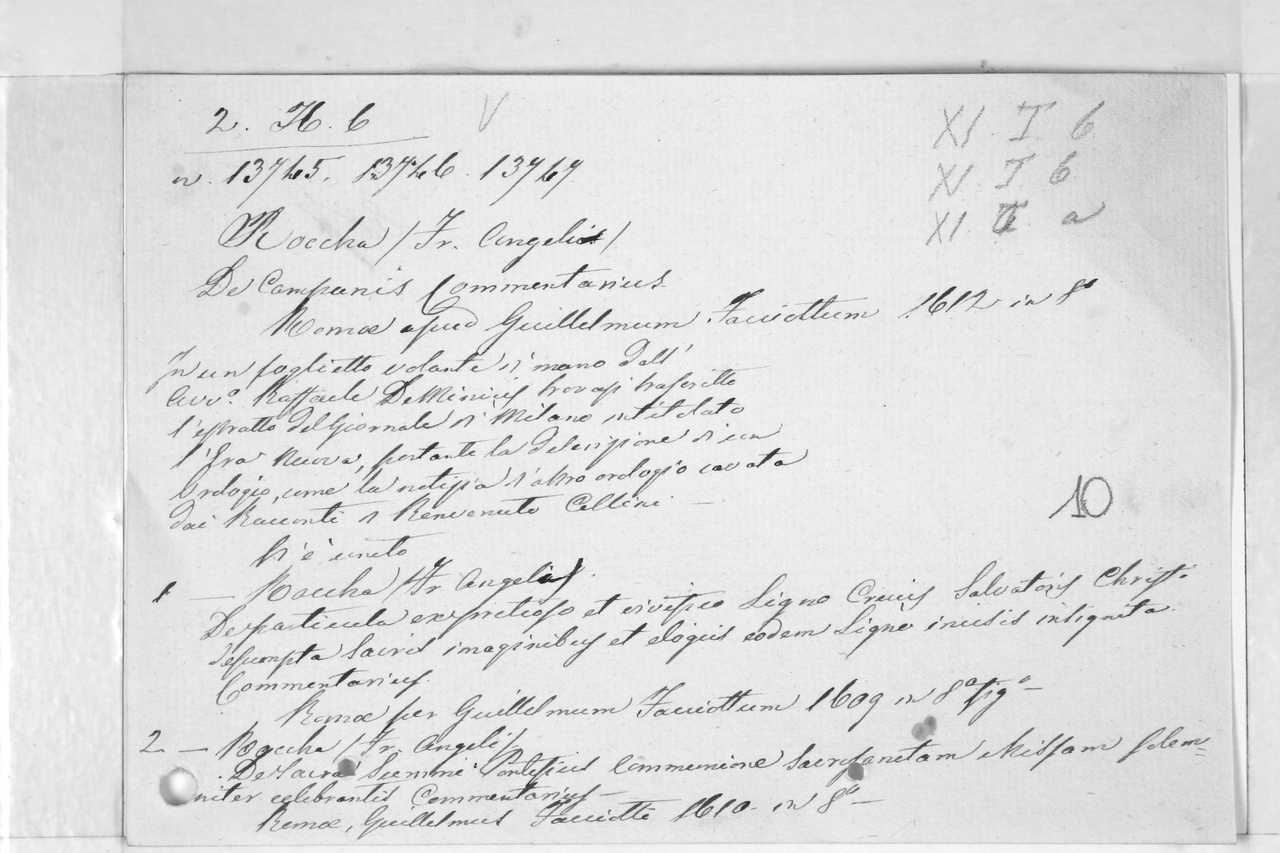 2. H. 6 V XI T 6
n. 13745. 13746. 13747 XI T 6
XI T a
Roccha / Fr. Angeli /
De Campanis Commentarius.
Romæ apud Guillelmum Facciottum 1612 in 8°
In un foglietto volante di mano dell'
Avv.° Raffaele DeMinicis trovasi trascritto
l'estratto del Giornale di Milano intitolato
l'Era Nuova, portante la descrizione di un
Orologio, come la notizia d'altro orologio cavata
dai Racconti di Benvenuto Cellini —
10
Vi è unito
1 — Roccha / Fr. Angeli /.
De particula ex pretioso et vivifico Ligno Crucis Salvatoris Christi
desumpta sacris imaginibus et elogiis eodem Ligno incisis insignita
Commentarius.
Romæ per Guillelmum Facciottum 1609 in 8° fig° —
2 — Roccha / Fr. Angeli /
De Sacra Summi Pontificis Communione Sacrosanctam Missam solem=
niter celebrantis Commentarius —
Romæ, Guillelmus Facciotti 1610 - in 8° —